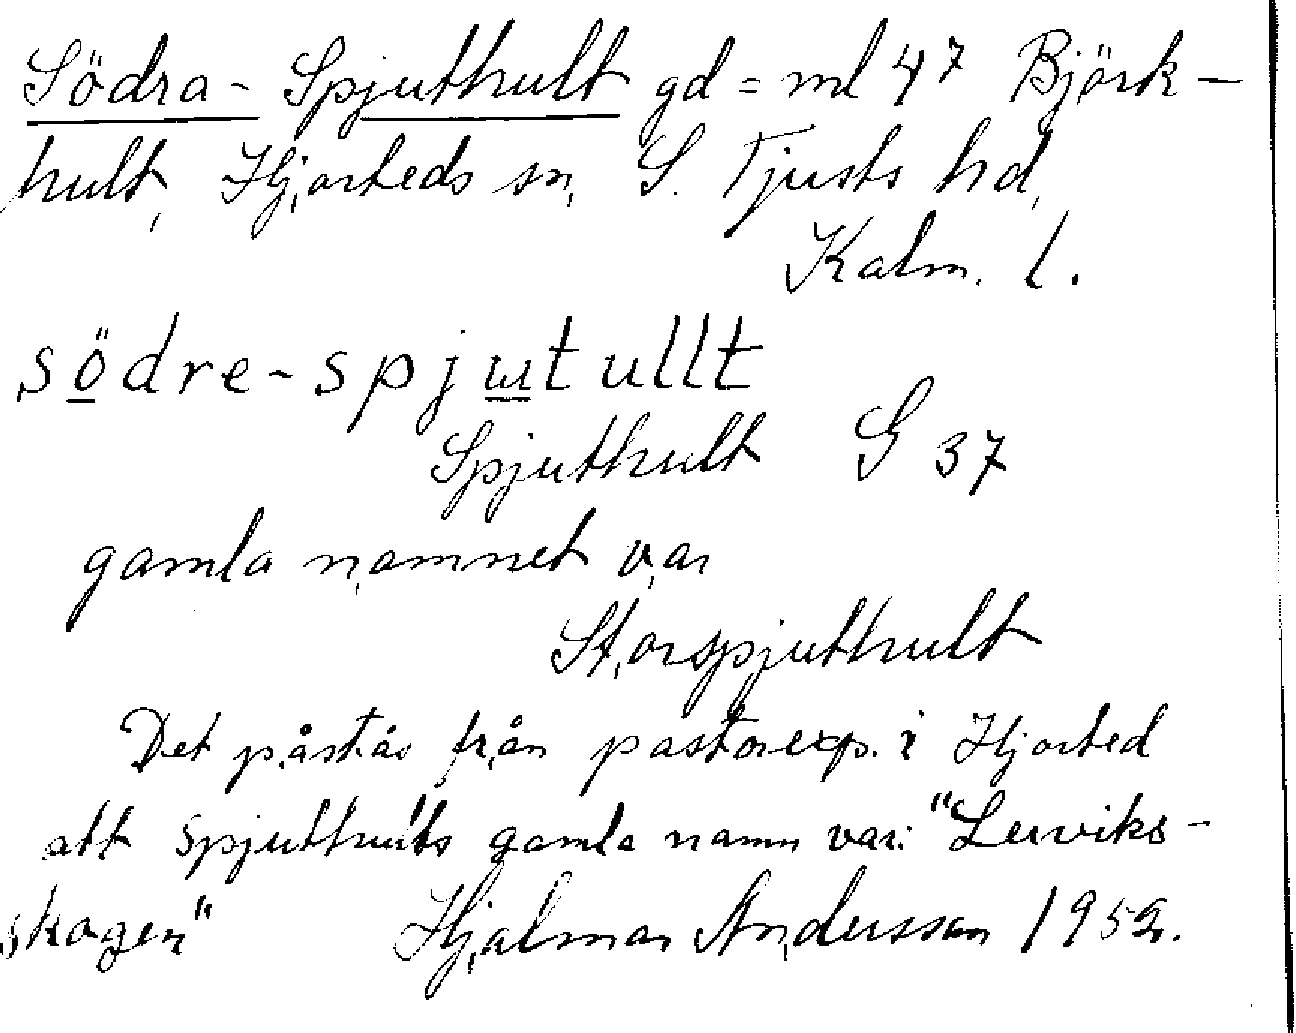 Södra-Spjuthult gd = ml 47 Björk-
hult, Hjorteds sn, S. Tjusts hd,
Kalm. l.
södre-spjɯtullt
Spjuthult G 37
gamla namnet var
Storspjuthult
Det påstås från pastorexp. i Hjorted
att Spjuthults gamla namn var: "Lerviks-
skogen" Hjalmar Andersson 1952.